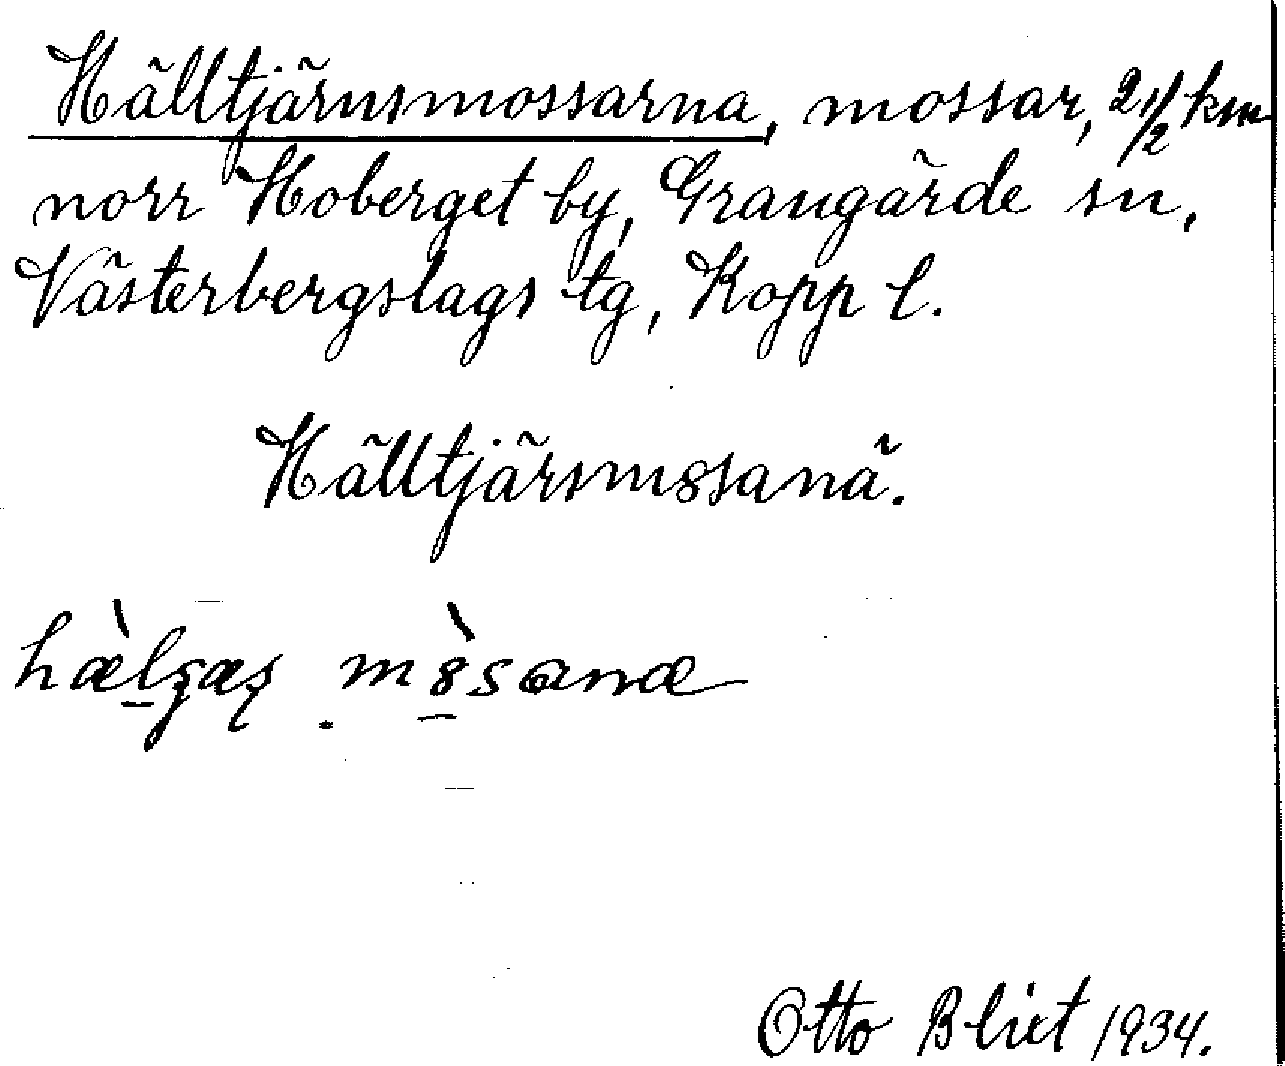 Hälltjärnsmossarna, mossar, 2 1/2 km
norr Hoberget by, Grangärde sn,
Västerbergslags tg, Kopp l.
Hälltjärsm8ssanä.
Otto Blixt 1934.